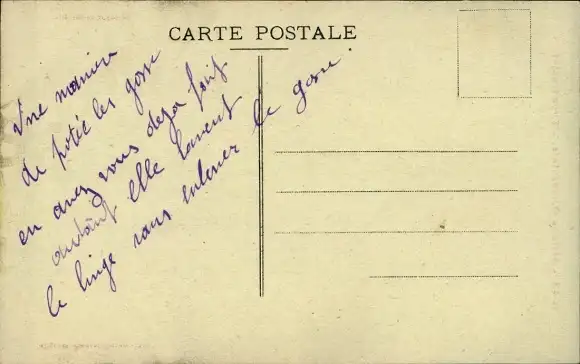 CARTE POSTALE
Une manière
de potée les gosse
en avez vous deja fait
autant elle lavent
le linge sans enlever le gosse.